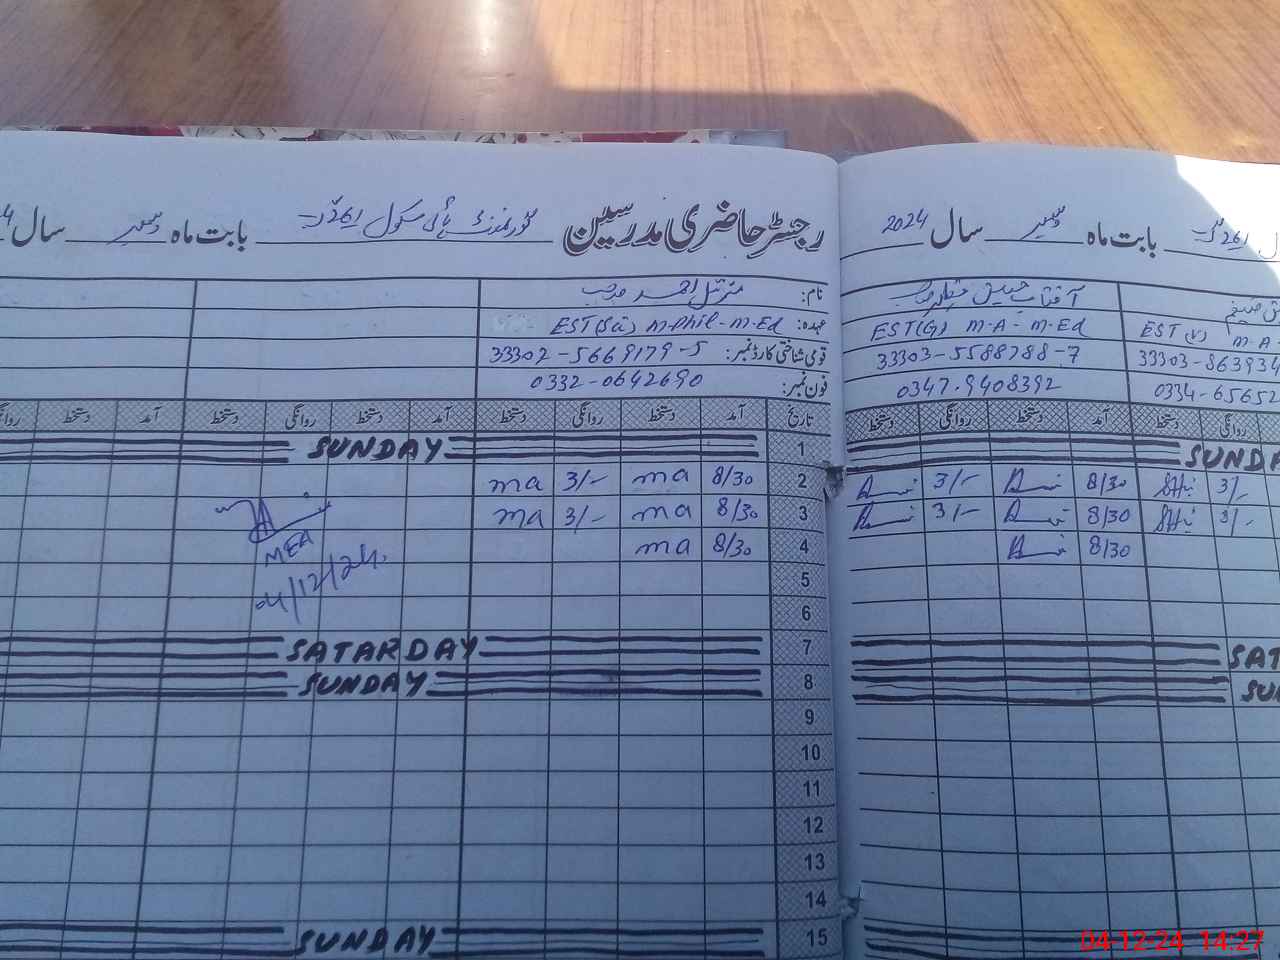 رجسٹر حاضری مدرسین گورنمنٹ ہائی سکول 261 گ ب بابت ماہ دسمبر سال
نام: مزمل احمد صاحب
عہدہ: EST(Sci) M.Phil-M.Ed
قومی شناختی کارڈ نمبر: 33302-5669179-5
فون نمبر: 0332-0642690
تاریخ آمد دستخط روانگی دستخط آمد دستخط روانگی دستخط
1 SUNDAY
2 8/30 ma 3/- ma
3 8/30 ma 3/- ma
4 8/30 ma
MEA
04/12/24.
5
6
7 SATARDAY
8 SUNDAY
9
10
11
12
13
14
15 SUNDAY
بابت ماہ دسمبر سال 2024
EST(V) M-A-
33303-863934
0334-65652
آفتاب
EST(G) M-A-M-Ed
33303-5588788-7
0347-9408392
روانگی دستخط آمد دستخط روانگی دستخط
SUNDA
3/- 8/30 3/-
3/- 8/30 3/-
8/30
SAT
SU
04-12-24 14:27